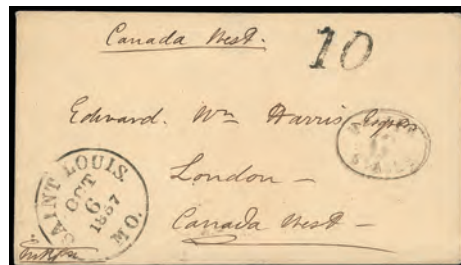 Canada West.
10
Edward. Wm Harris Esqre
London –
Canada West –
SAINT LOUIS MO.
OCT
6
1857